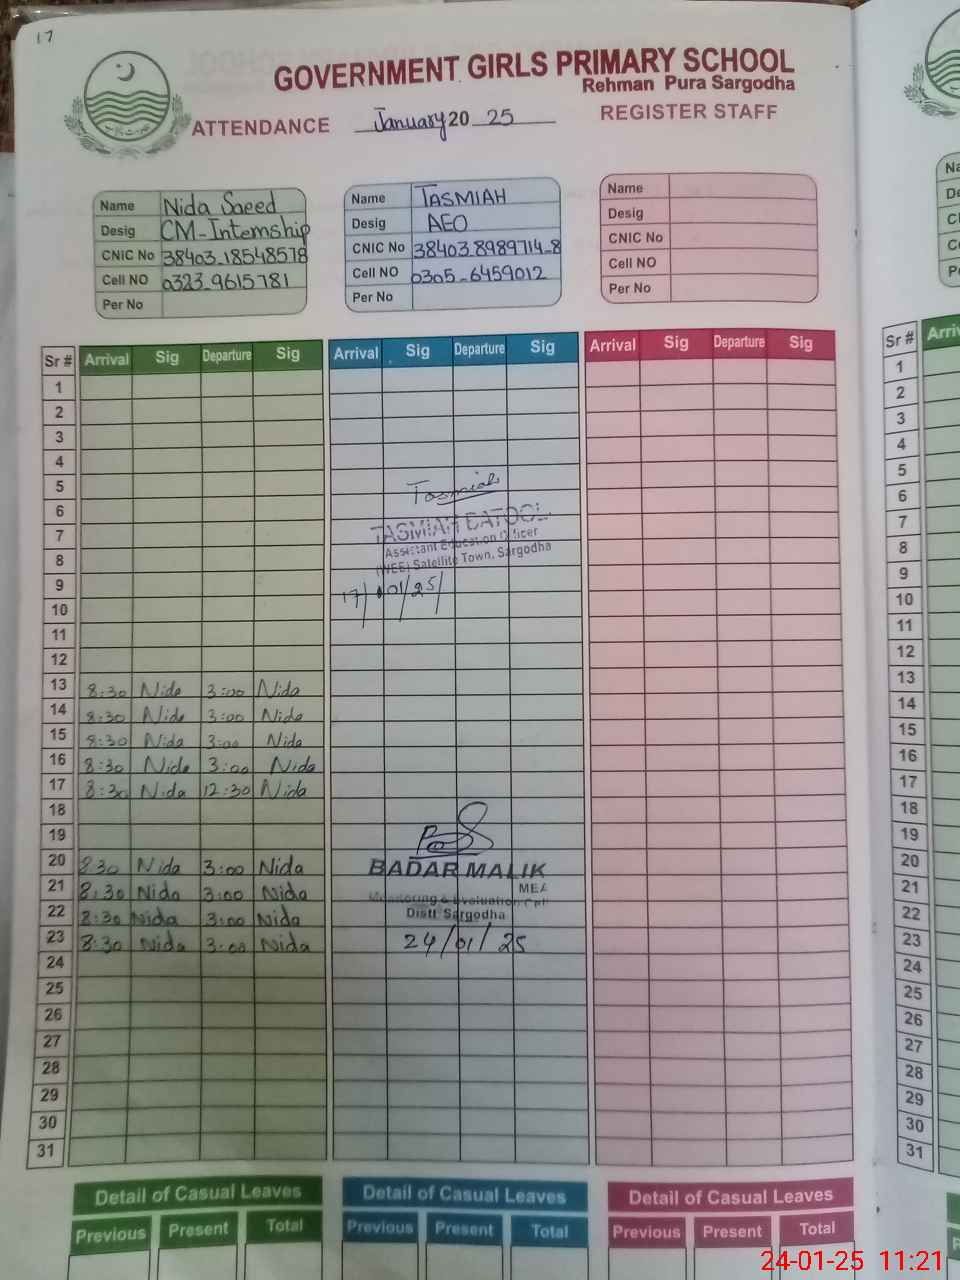 17
GOVERNMENT GIRLS PRIMARY SCHOOL
Rehman Pura Sargodha
ATTENDANCE January 20 25 REGISTER STAFF
Name Nida Saeed
Desig CM-Internship
CNIC No 38403-18548578
Cell NO 0323-9615781
Per No
Name TASMIAH
Desig AEO
CNIC No 38403-8989714-8
Cell NO 0305-6459012
Per No
Name
Desig
CNIC No
Cell NO
Per No
Sr # Arrival Sig Departure Sig Arrival Sig Departure Sig Arrival Sig Departure Sig
1
2
3
4
5
Tasmiah
6
7
TASMIAH BATOOL
Assistant Education Officer
8
(WEE) Satellite Town, Sargodha
9
17/01/25/
10
11
12
13 8:30 Nida 3:00 Nida
14 8:30 Nida 3:00 Nida
15 8:30 Nida 3:00 Nida
16 8:30 Nida 3:00 Nida
17 8:30 Nida 12:30 Nida
18
19
20 830 Nida 3:00 Nida BADAR MALIK
21 8:30 Nida 3:00 Nida MEA
Monitoring & Evaluation Cell
22 8:30 Nida 3:00 Nida Distt Sargodha
23 8:30 Nida 3:00 Nida 24/01/25
24
25
26
27
28
29
30
31
Detail of Casual Leaves Detail of Casual Leaves Detail of Casual Leaves
Previous Present Total Previous Present Total Previous Present Total
Sr #
1
2
3
4
5
6
7
8
9
10
11
12
13
14
15
16
17
18
19
20
21
22
23
24
25
26
27
28
29
30
31
24-01-25 11:21